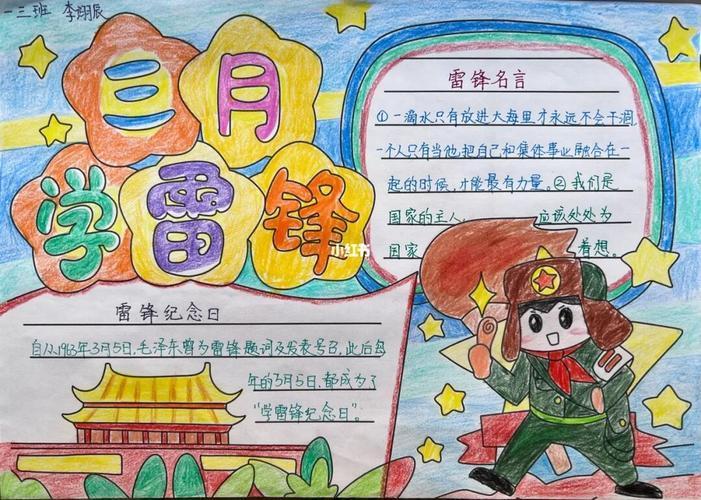 一三班 李翊辰
三月
学雷锋
雷锋名言
①一滴水只有放进大海里才永远不会干涸,
一个人只有当他把自己和集体事业融合在一
起的时候,才能最有力量。②我们是
国家的主人, 应该处处为
国家 着想。
小红书
雷锋纪念日
自从1963年3月5日,毛泽东曾为雷锋题词及发表号召,此后每
年的3月5日,都成为了
“学雷锋纪念日”。